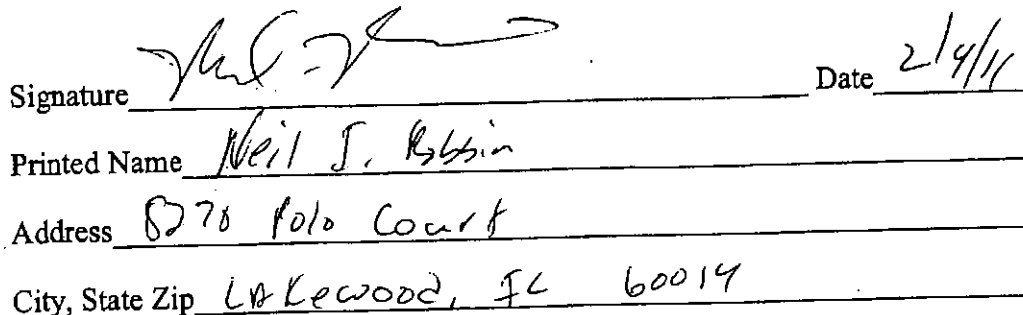 Signature Date 2/4/11
Printed Name Neil J. Robbin
Address 8270 Polo Court
City, State Zip Lakewood, IL 60014